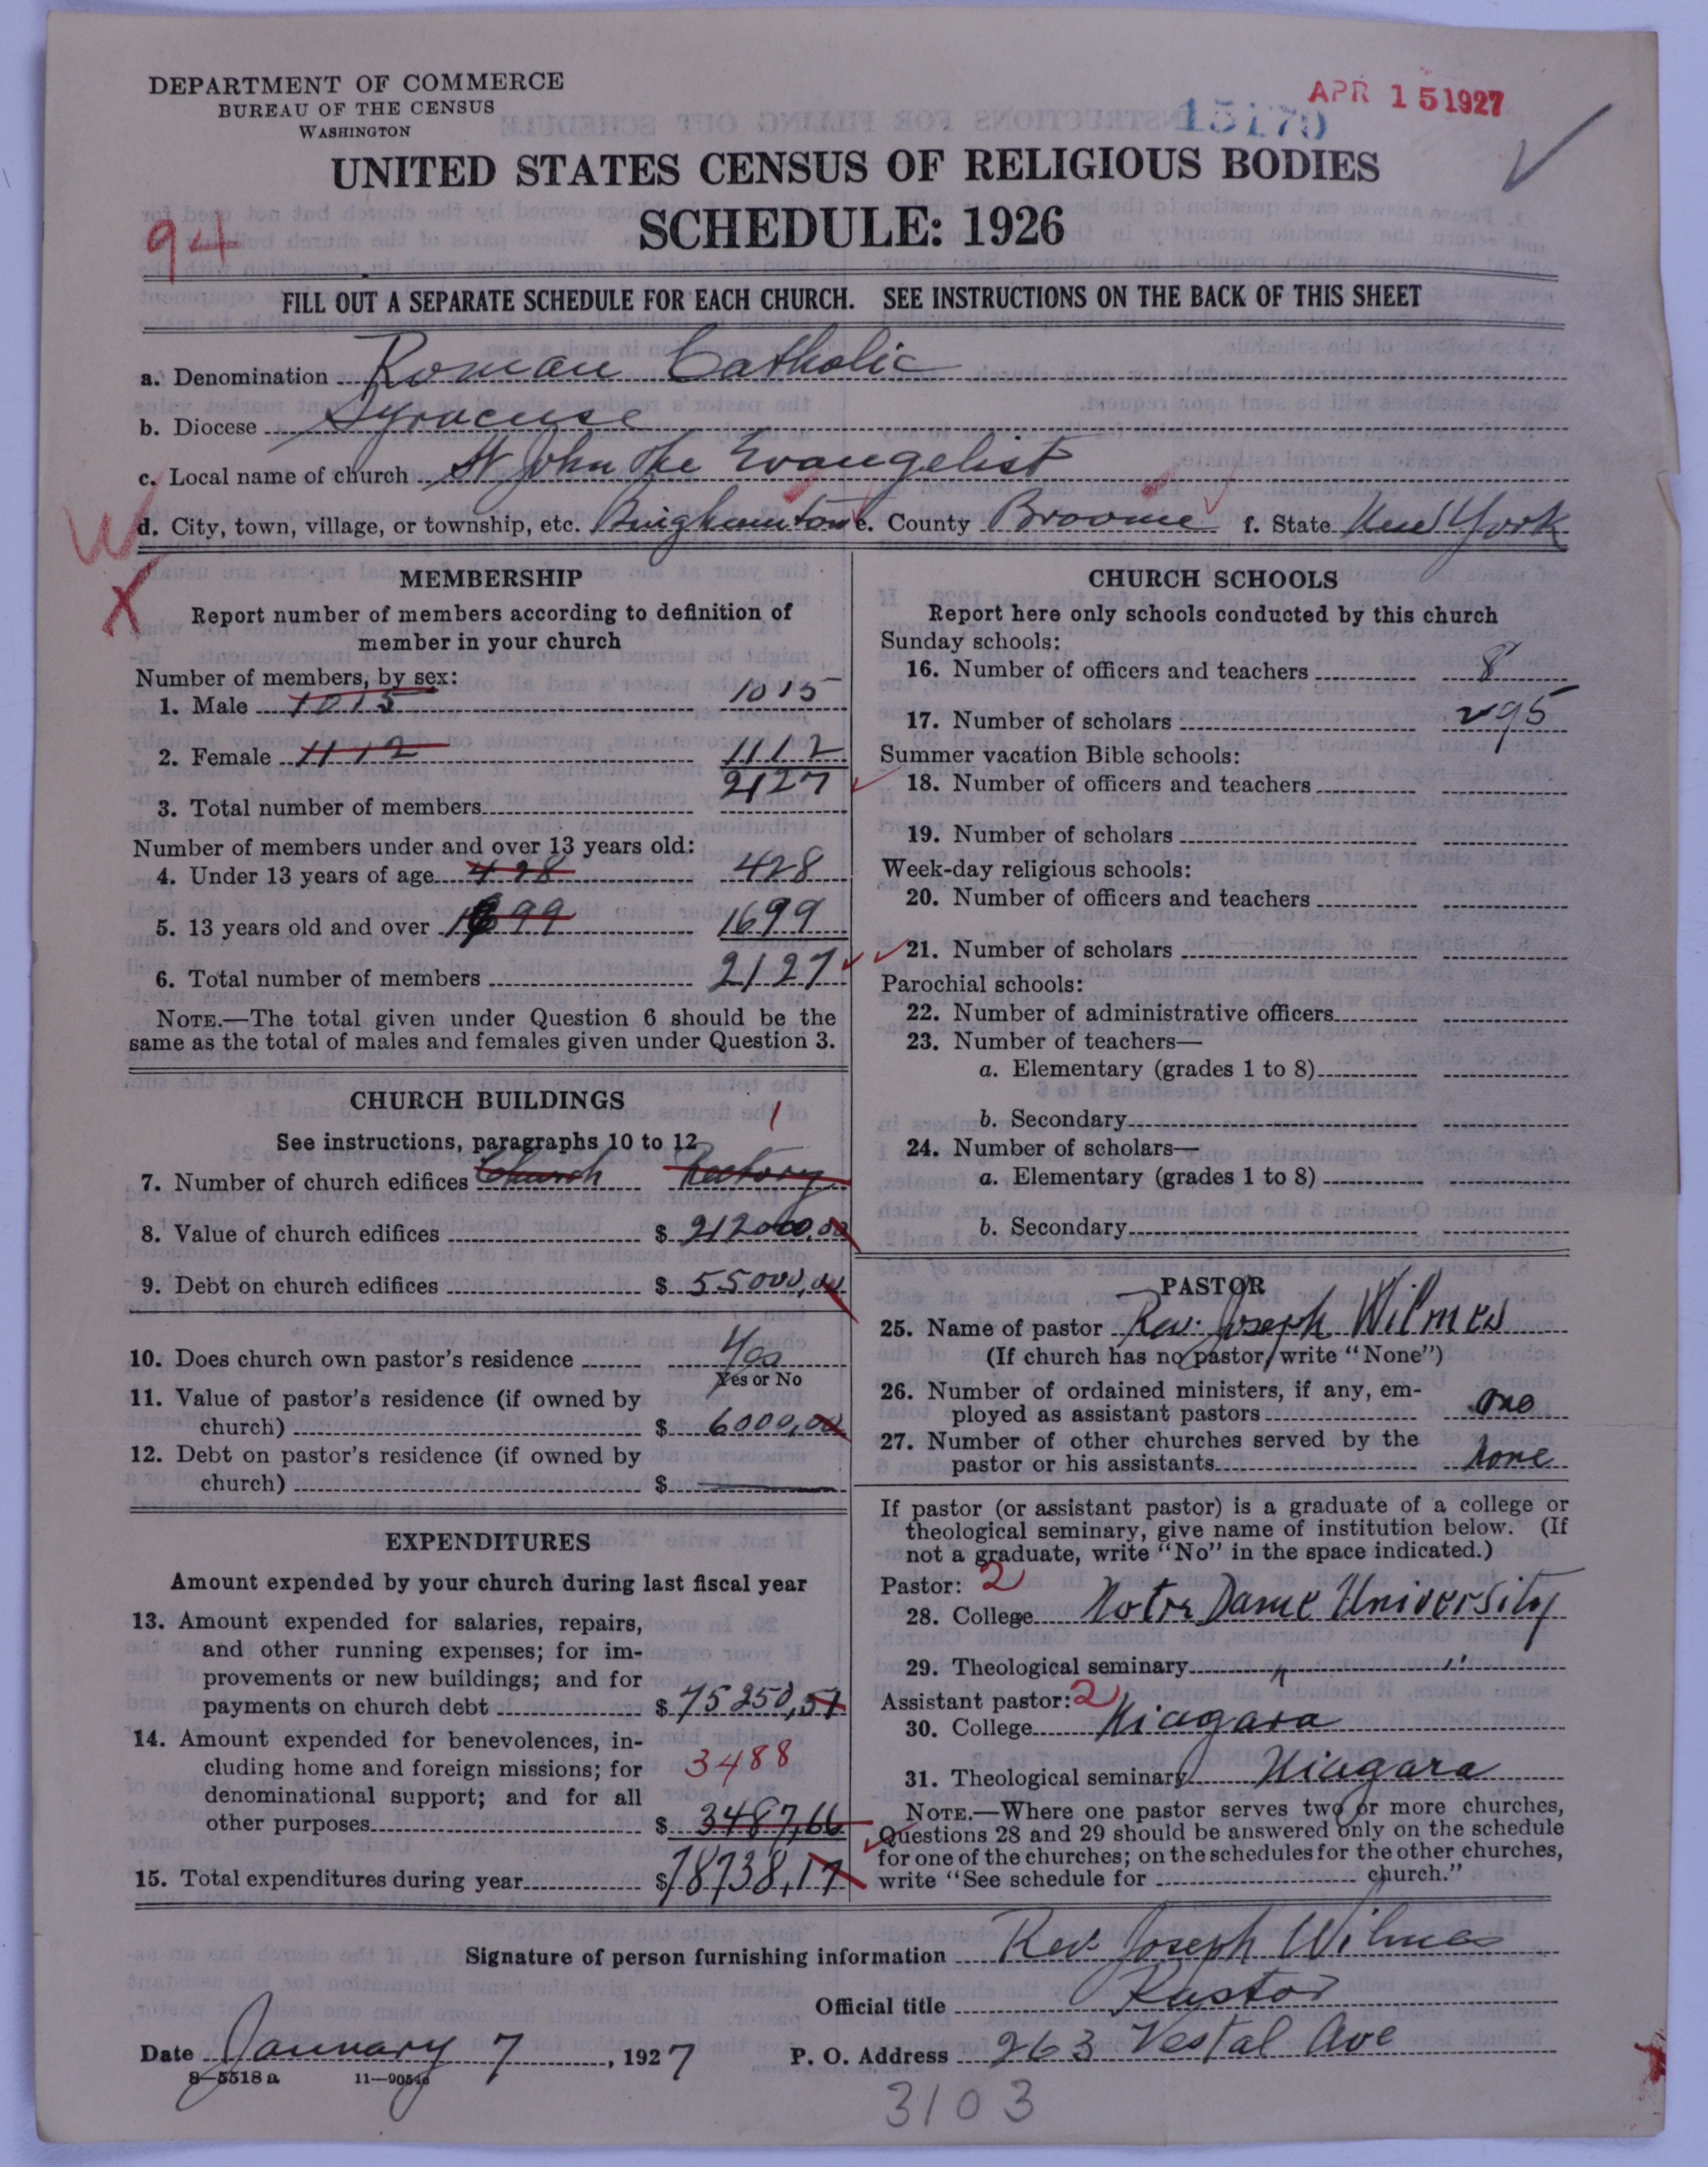 DEPARTMENT OF COMMERCE
BUREAU OF THE CENSUS
WASHINGTON
APR 15 1927
15170
UNITED STATES CENSUS OF RELIGIOUS BODIES
SCHEDULE: 1926
94
FILL OUT A SEPARATE SCHEDULE FOR EACH CHURCH. SEE INSTRUCTIONS ON THE BACK OF THIS SHEET
a. Denomination Roman Catholic
b. Diocese Syracuse
c. Local name of church St John The Evangelist
d. City, town, village, or township, etc. Binghamton e. County Broome f. State New York
W
X
MEMBERSHIP
Report number of members according to definition of
member in your church
Number of members, by sex:
1. Male 1015 1015
2. Female 1112 1112
3. Total number of members 2127
Number of members under and over 13 years old:
4. Under 13 years of age 428 428
5. 13 years old and over 1699 1699
6. Total number of members 2127
NOTE.—The total given under Question 6 should be the
same as the total of males and females given under Question 3.
CHURCH BUILDINGS
See instructions, paragraphs 10 to 12
1
7. Number of church edifices Church Rectory
8. Value of church edifices $ 212000,00
9. Debt on church edifices $ 55000,00
10. Does church own pastor's residence Yes
Yes or No
11. Value of pastor's residence (if owned by
church) $ 6000,00
12. Debt on pastor's residence (if owned by
church) $
EXPENDITURES
Amount expended by your church during last fiscal year
13. Amount expended for salaries, repairs,
and other running expenses; for im-
provements or new buildings; and for
payments on church debt $ 75250,51
14. Amount expended for benevolences, in-
cluding home and foreign missions; for 3488
denominational support; and for all
other purposes $ 3487,66
15. Total expenditures during year $ 78738,17
CHURCH SCHOOLS
Report here only schools conducted by this church
Sunday schools:
16. Number of officers and teachers 8
17. Number of scholars 295
Summer vacation Bible schools:
18. Number of officers and teachers
19. Number of scholars
Week-day religious schools:
20. Number of officers and teachers
21. Number of scholars
Parochial schools:
22. Number of administrative officers
23. Number of teachers—
a. Elementary (grades 1 to 8)
b. Secondary
24. Number of scholars—
a. Elementary (grades 1 to 8)
b. Secondary
PASTOR
25. Name of pastor Rev. Joseph Wilmes
(If church has no pastor, write "None")
26. Number of ordained ministers, if any, em-
ployed as assistant pastors one
27. Number of other churches served by the
pastor or his assistants none
If pastor (or assistant pastor) is a graduate of a college or
theological seminary, give name of institution below. (If
not a graduate, write "No" in the space indicated.)
Pastor: 2
28. College Notre Dame University
29. Theological seminary " "
Assistant pastor: 2
30. College Niagara
31. Theological seminary Niagara
NOTE.—Where one pastor serves two or more churches,
Questions 28 and 29 should be answered only on the schedule
for one of the churches; on the schedules for the other churches,
write "See schedule for church."
Signature of person furnishing information Rev. Joseph Wilmes
Official title Pastor
Date January 7, 1927 P. O. Address 263 Vestal Ave
8—5518 a 11—90546
3103